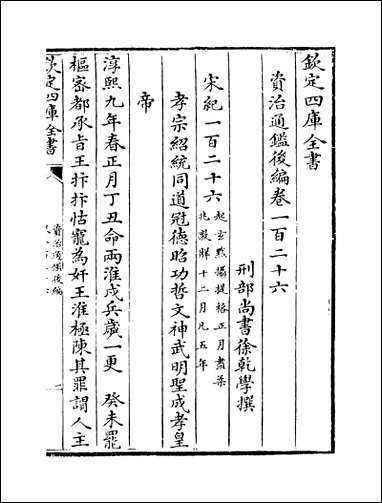 欽定四庫全書
資治通鑑後編卷一百二十六
刑部尚書徐乾學撰
宋紀一百二十六起玄黓攝提格正月盡柔兆敦牂十二月凡五年
孝宗紹統同道冠德昭功哲文神武明聖成孝皇
帝
淳熙九年春正月丁丑命兩淮戍兵歲一更 癸未罷
樞密都承旨王抃抃怙寵為奸王淮極陳其罪謂人主
欽定四庫全書
資治通鑑後編
一